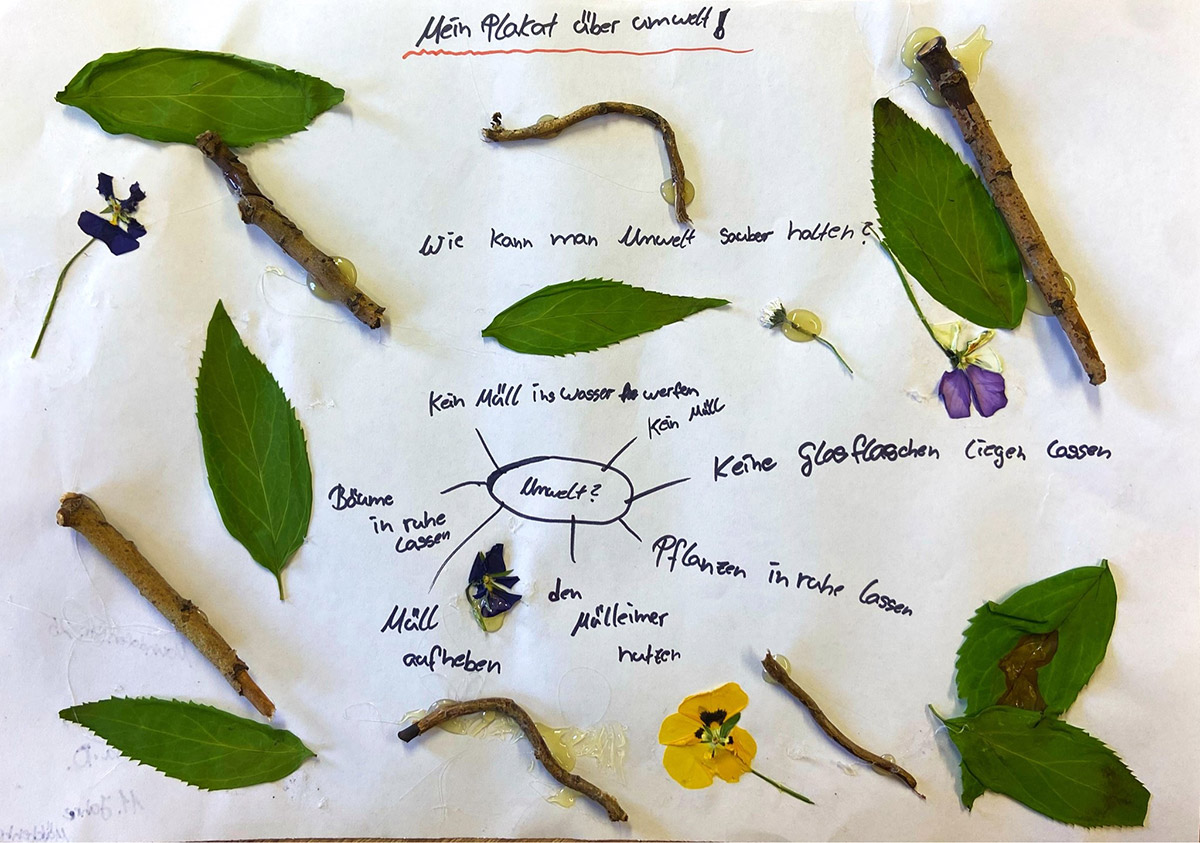 Mein Plakat über umwelt!
Wie kann man Umwelt sauber halten?
Kein Müll ins wasser werfen
Kein Müll
Keine glasflaschen liegen lassen
Umwelt?
Bäume
in ruhe
lassen
Pflanzen in ruhe lassen
den
Mülleimer
nutzen
Müll
aufheben
11. Jahre